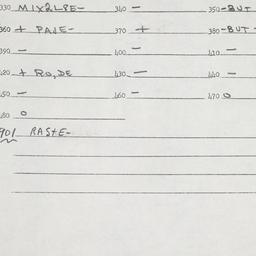 330 MIX2LSE- 340 - 350-BUT
360 + PAJE- 370 + 380-BUT-
390 - 400 - 410 -
420 + RO,DE 430 - 440 -
450 - 460 - 470 0
480 0
901 RASTE-